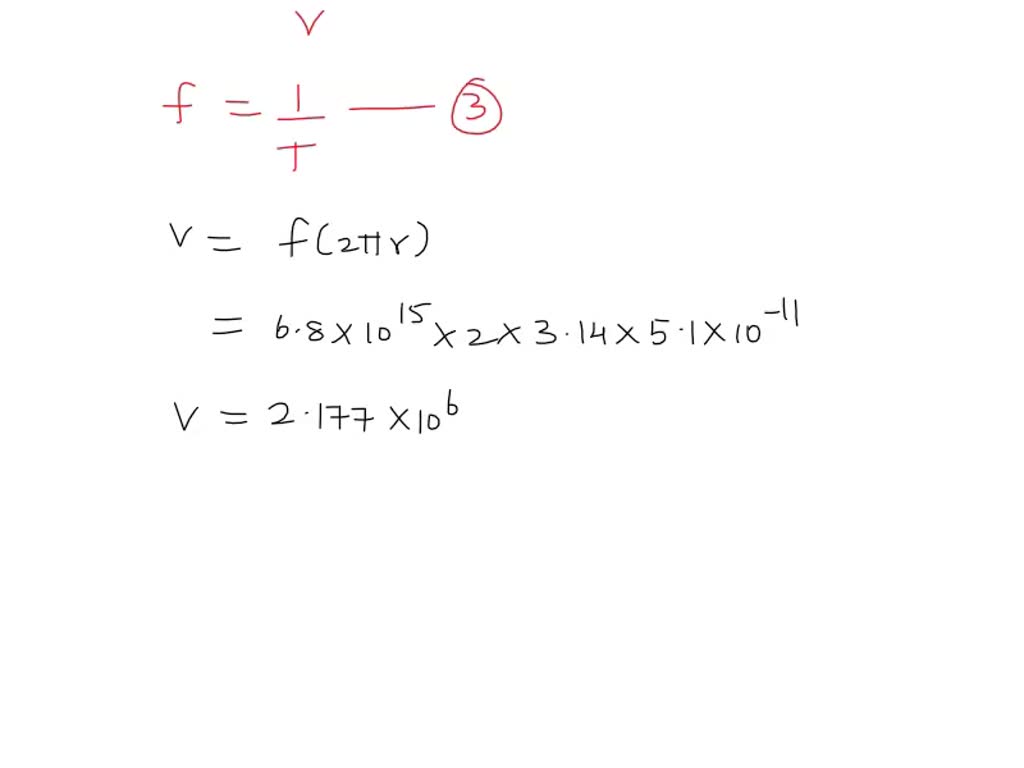 v
f = 1/T — ③
v = f(2πr)
= 6.8 × 10^15 × 2 × 3.14 × 5.1 × 10^-11
v = 2.177 × 10^6